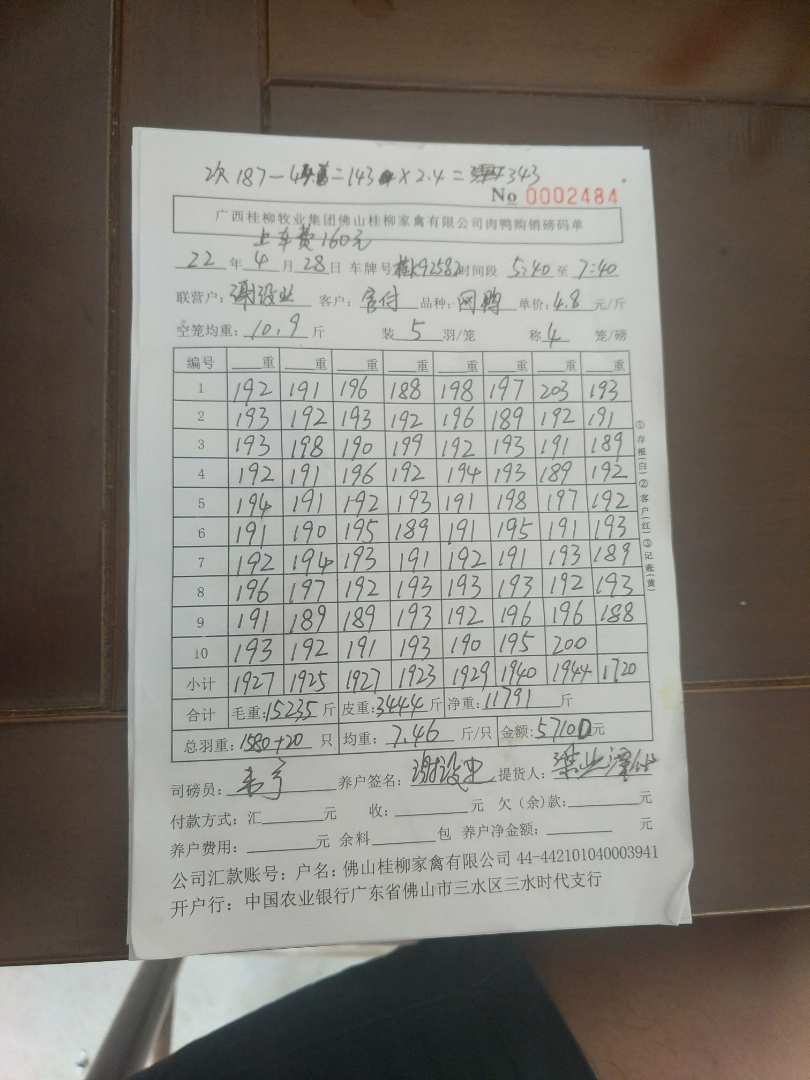 次 187-4 =143 ×2.4= 343
No 0002484
广西桂柳牧业集团佛山桂柳家禽有限公司肉鸭购销磅码单
上车费160元
22 年 4 月 28 日 车牌号 桂K92582 时间段 5:40 至 7:40
联营户: 谢设业 客户: 官付 品种: 网鸭 单价: 4.8 元/斤
空笼均重: 10.9 斤 装 5 羽/笼 称 4 笼/磅
编号 重 重 重 重 重 重 重 重
1 192 191 196 188 198 197 203 193
2 193 192 193 192 196 189 192 191
3 193 198 190 199 192 193 191 189
4 192 191 196 192 194 193 189 192
5 194 191 192 193 191 198 197 192
6 191 190 195 189 191 195 191 193
7 192 194 193 191 192 191 193 189
8 196 197 192 193 193 193 192 193
9 191 189 189 193 192 196 196 188
10 193 192 191 193 190 195 200
小计 1927 1925 1927 1923 1929 1940 1944 1720
合计 毛重: 15235 斤 皮重: 3444 斤 净重: 11791 斤
总羽重: 1580+20 只 均重: 7.46 斤/只 金额: 57100 元
司磅员: 养户签名: 谢设业 提货人:
付款方式: 汇 元 收: 元 欠(余)款: 元
养户费用: 元 余料 包 养户净金额: 元
公司汇款账号: 户名: 佛山桂柳家禽有限公司 44-442101040003941
开户行: 中国农业银行广东省佛山市三水区三水时代支行
①存根(白)②客户(红)③记账(黄)